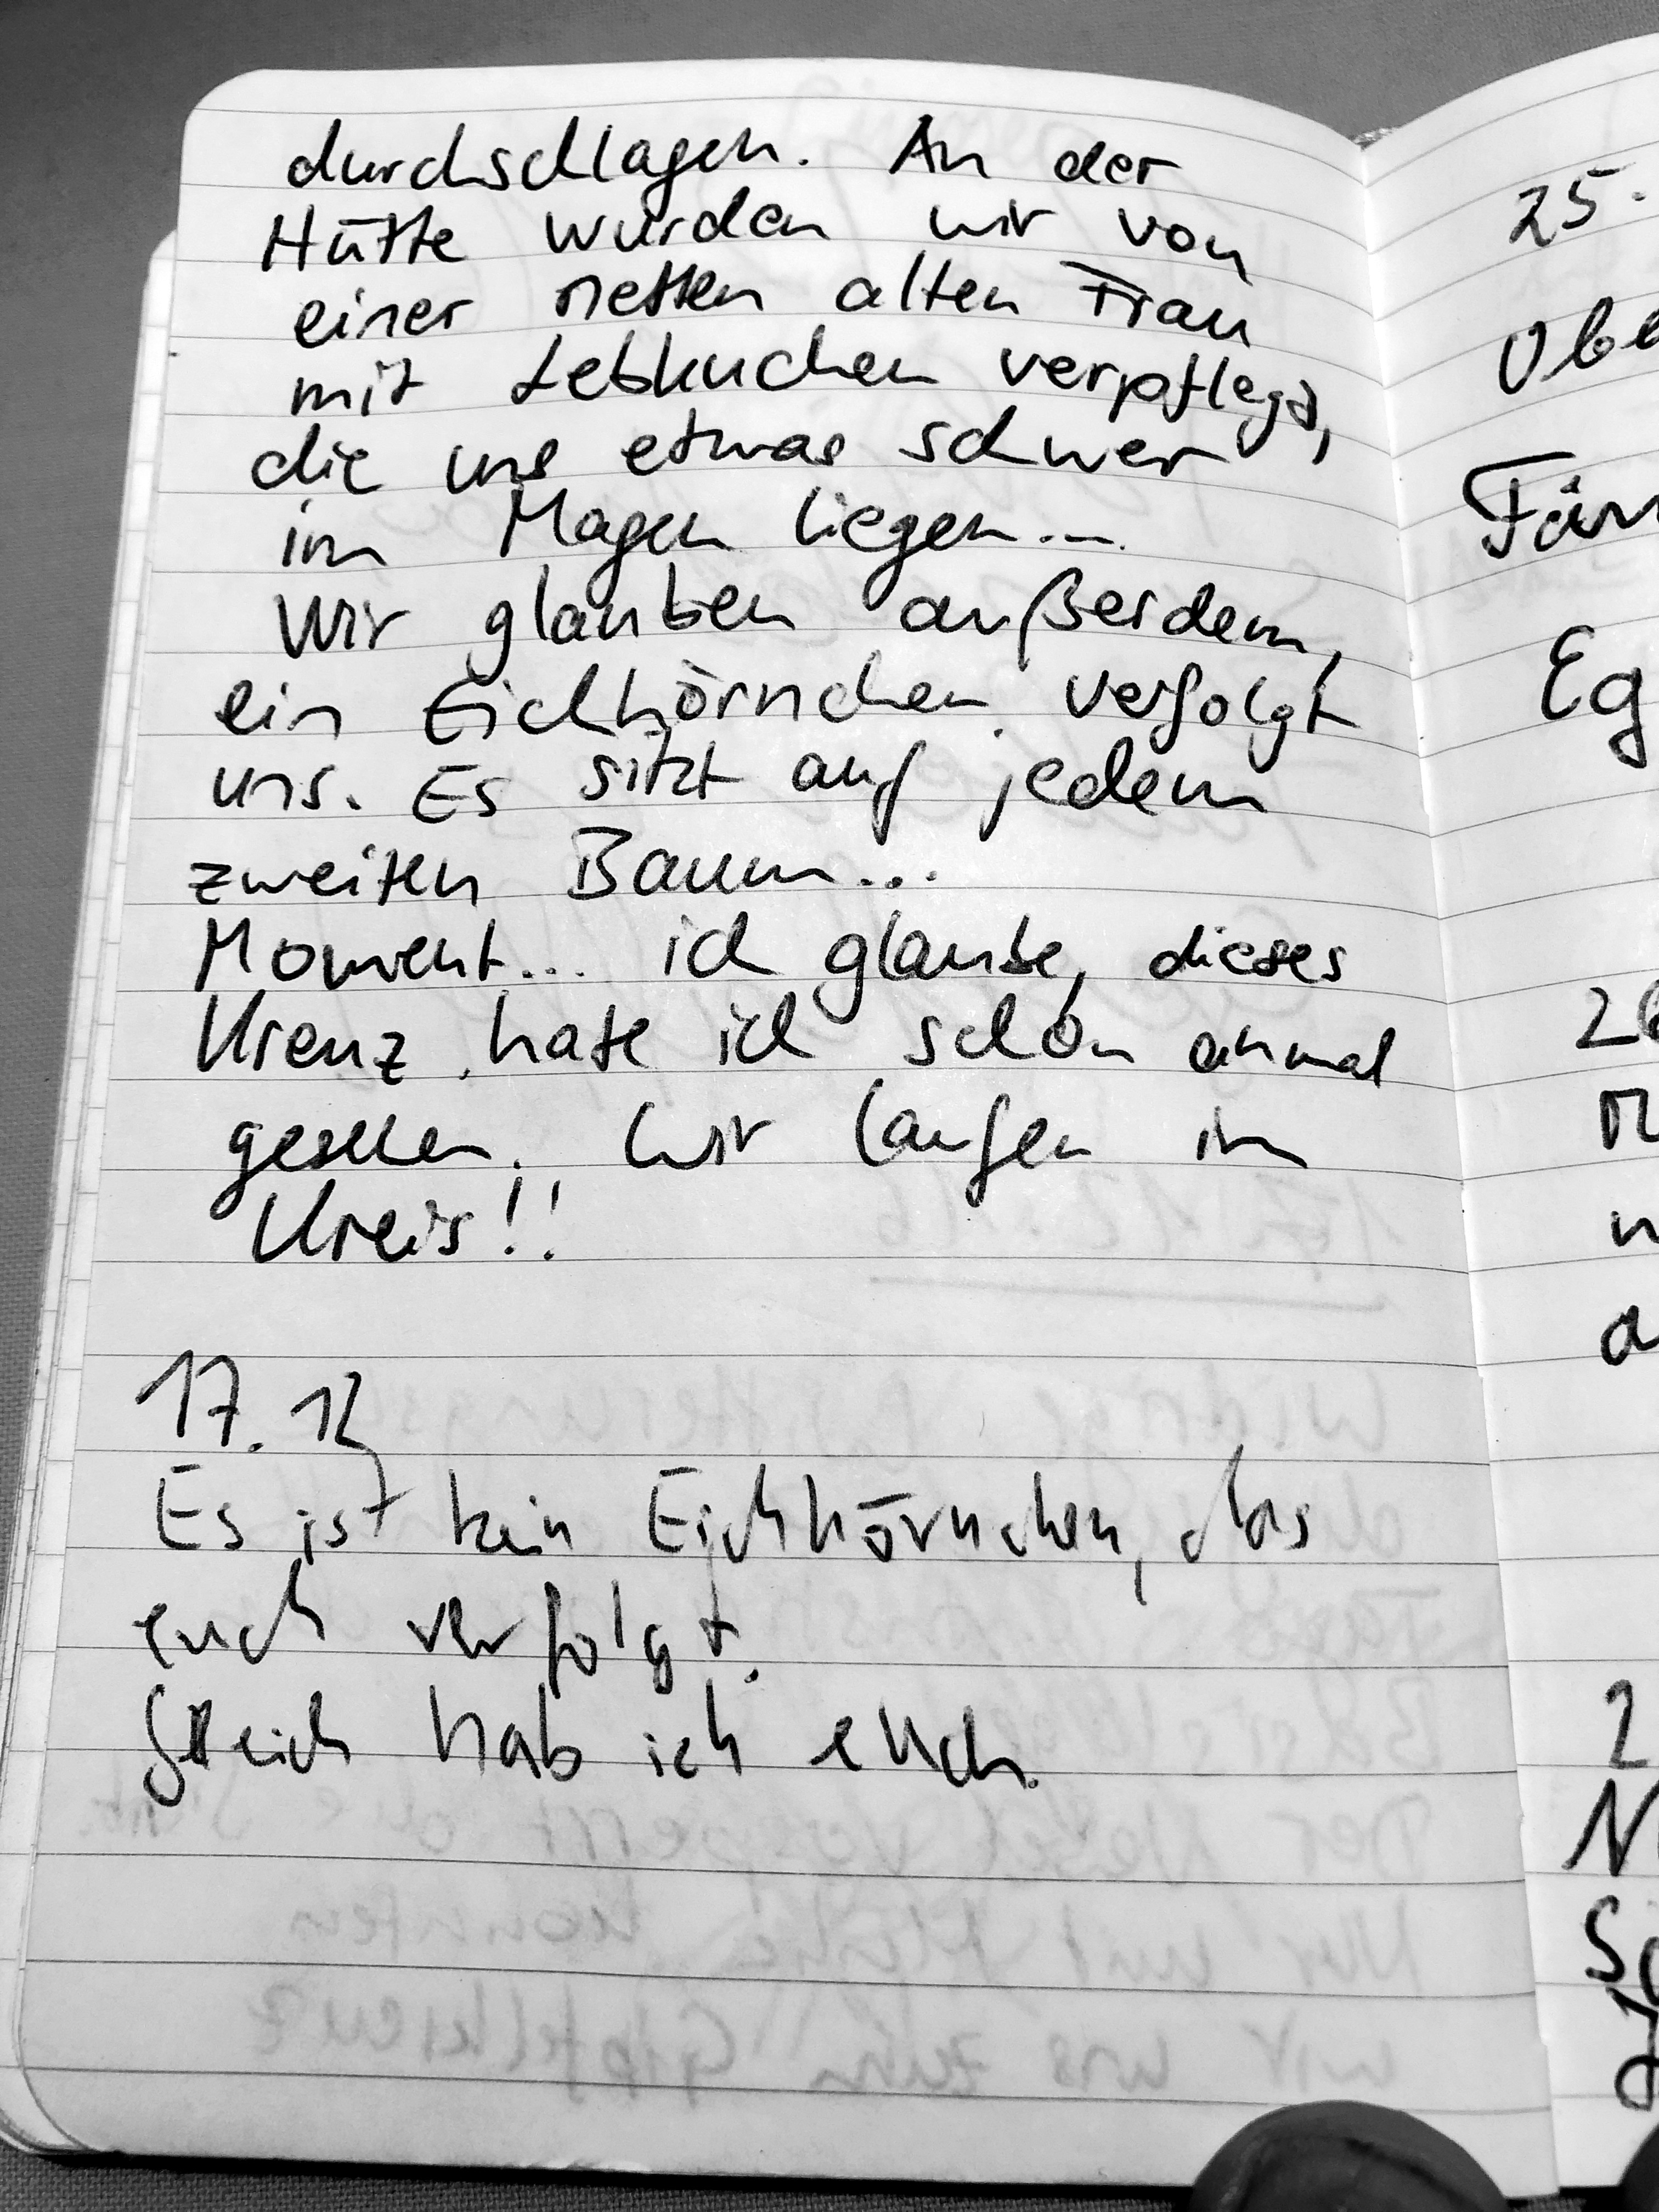 durchschlagen. An der
Hütte wurden wir von
einer netten alten Frau
mit Lebkuchen verpflegt,
die uns etwas schwer
im Magen liegen...
Wir glauben außerdem,
ein Eichhörnchen verfolgt
uns. Es sitzt auf jedem
zweiten Baum...
Moment... ich glaube, dieses
Kreuz habe ich schon einmal
gesehen. Wir laufen im
Kreis!!
17.12
Es ist kein Eichhörnchen, das
euch verfolgt.
Gleich hab ich euch.
25.
Eg